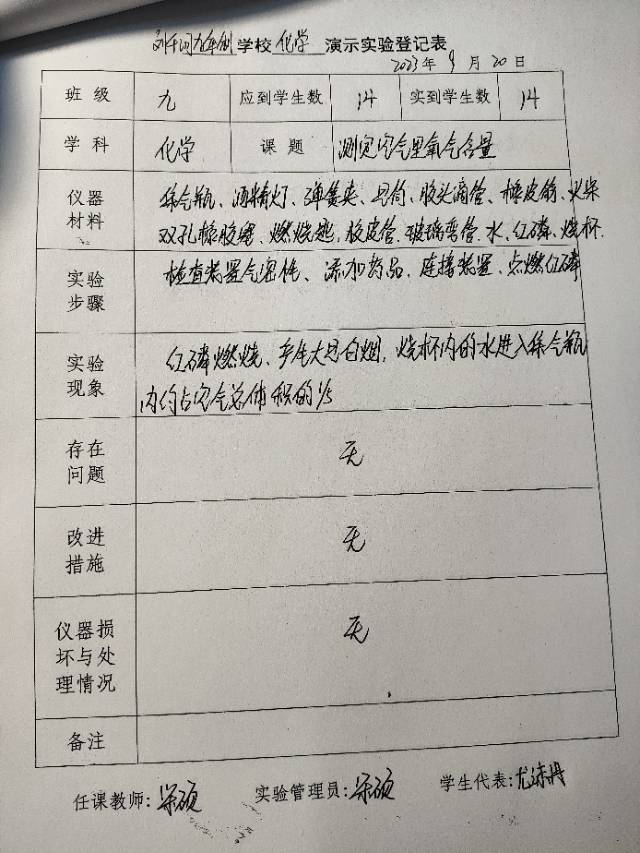 九年制学校 化学 演示实验登记表
2023年 9月 20日
班级 九 应到学生数 14 实到学生数 14
学科 化学 课题 测定空气里氧气含量
仪器材料 集气瓶、酒精灯、弹簧夹、量筒、胶头滴管、橡皮筋、火柴
双孔橡胶塞、燃烧匙、胶皮管、玻璃弯管、水、红磷、烧杯.
实验步骤 检查装置气密性、添加药品、连接装置、点燃红磷
实验现象 红磷燃烧、产生大量白烟,烧杯内的水进入集气瓶
内约占空气总体积的1/5
存在问题 无
改进措施 无
仪器损坏与处理情况 无
备注
任课教师: 实验管理员: 学生代表: